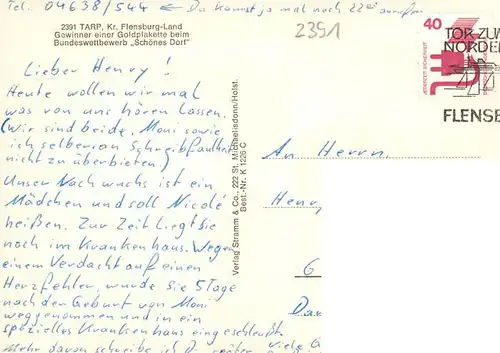 Tel. 04638/544 ← Du kannst ja mal nach 22°° anrufen
2391 TARP, Kr. Flensburg-Land
Gewinner einer Goldplakette beim
Bundeswettbewerb „Schönes Dorf"
2391
40
JEDERZEIT SICHERHEIT
TOR ZUM
NORDEN
FLENSB
Lieber Henry!
Heute wollen wir mal
was von uns hören lassen.
(Wir sind beide, Moni sowie
ich selber an Schreibfaulheit
nicht zu überbieten)
Unser Nachwuchs ist ein
Mädchen und soll Nicole
heißen. Zur Zeit liegt sie
noch im Krankenhaus. Wegen
einem Verdacht auf einen
Herzfehler, wurde sie 5 Tage
nach der Geburt von Moni
weggenommen und in ein
spezielles Krankenhaus
Mehr davon schreibe ich Dir später. Viele G
Verlag Stramm & Co., 222 St. Michaelisdonn/Holst.
Best.-Nr. K 1226 C
An Herrn
Henry
6